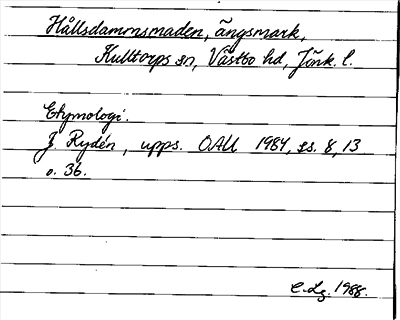 Hållsdammsmaden, ängsmark,
Kulltorps sn, Västbo hd, Jönk. l.
Etymologi.
J Rydén, upps. OAU 1984, ss. 8, 13
o. 36.
C. Lg. 1988.